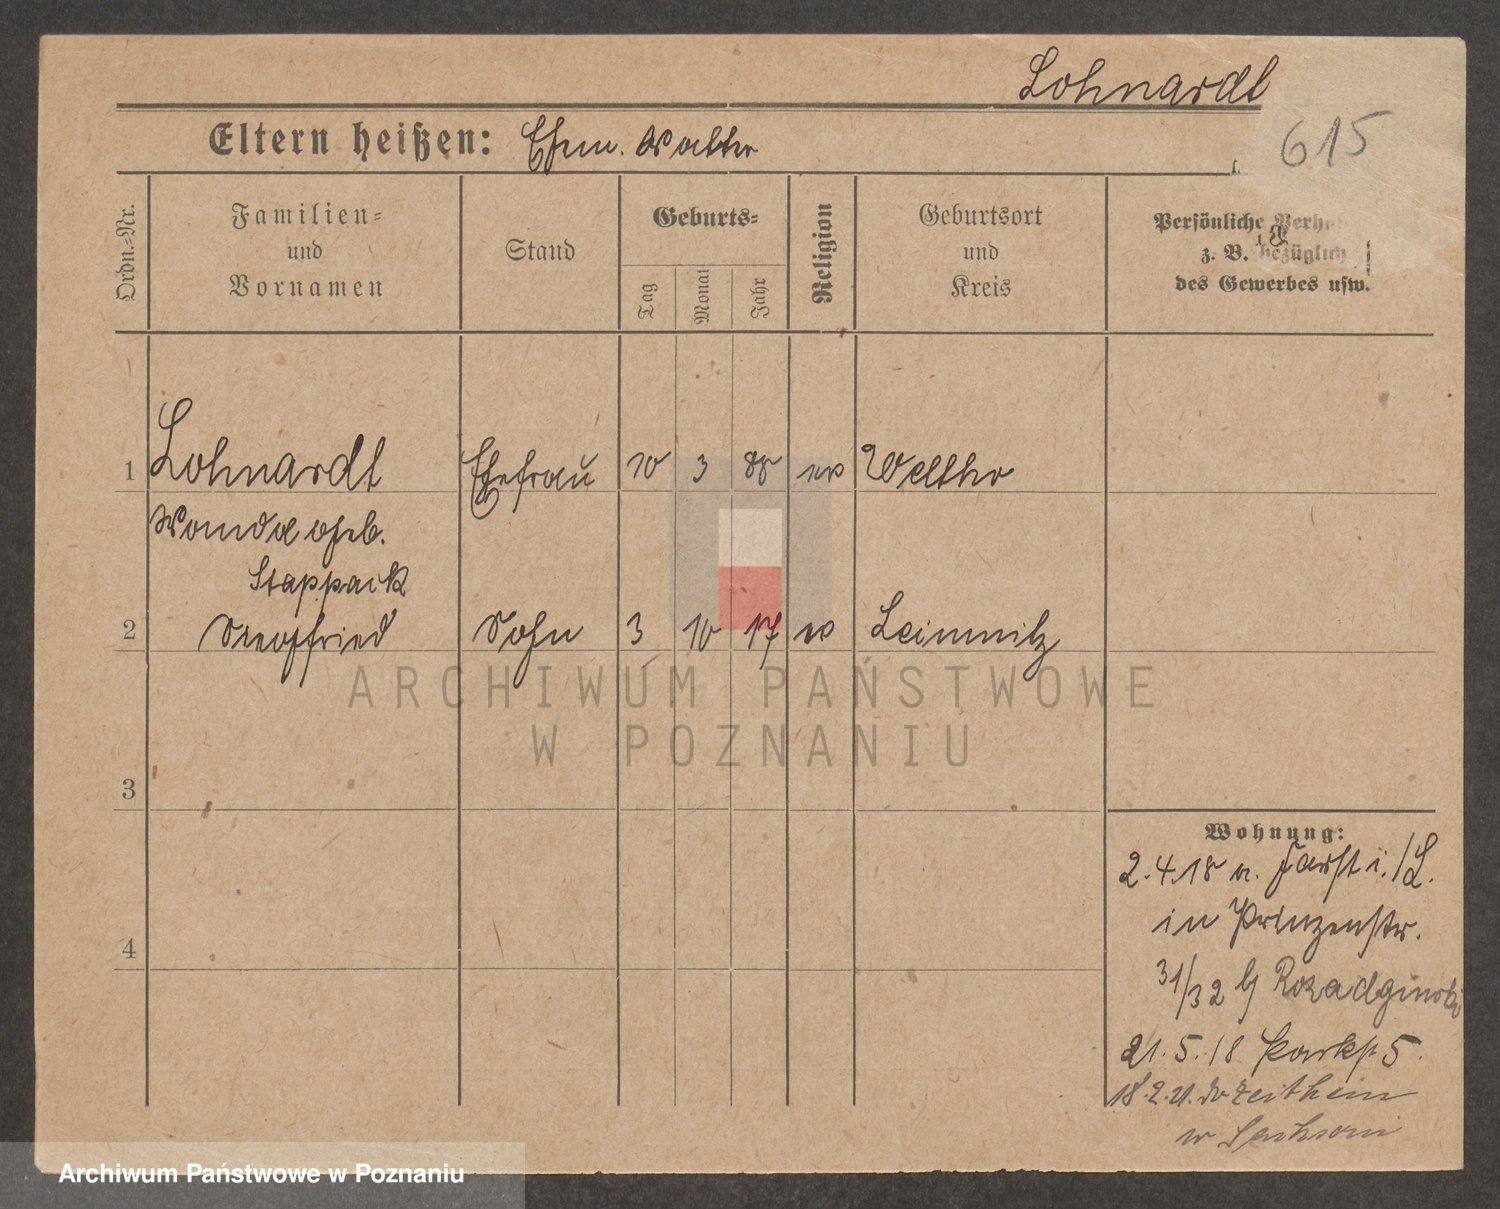 Lohnardt
Eltern heißen: Ehem. Walter
615
Ordn.-Nr.
Familien-
und
Vornamen
Stand
Geburts-
Tag
Monat
Jahr
Religion
Geburtsort
und
Kreis
Persönliche Verh
z. B. bezüglich
des Gewerbes usw.
1 Lohnardt Ehefrau 10 3 88
Wanda geb.
Stappack
2 Siegfried Sohn 3 10 17 Leimnitz
ARCHIWUM PAŃSTWOWE
W POZNANIU
3
4
Wohnung:
2.4.18 v. Forst i./L.
in Prinzenstr.
31/32
21.5.18 Parkst 5.
18.2.21. do Zeithein
w Sachsen
Archiwum Państwowe w Poznaniu